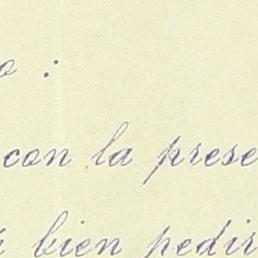 o :
con la prese
bien pedir